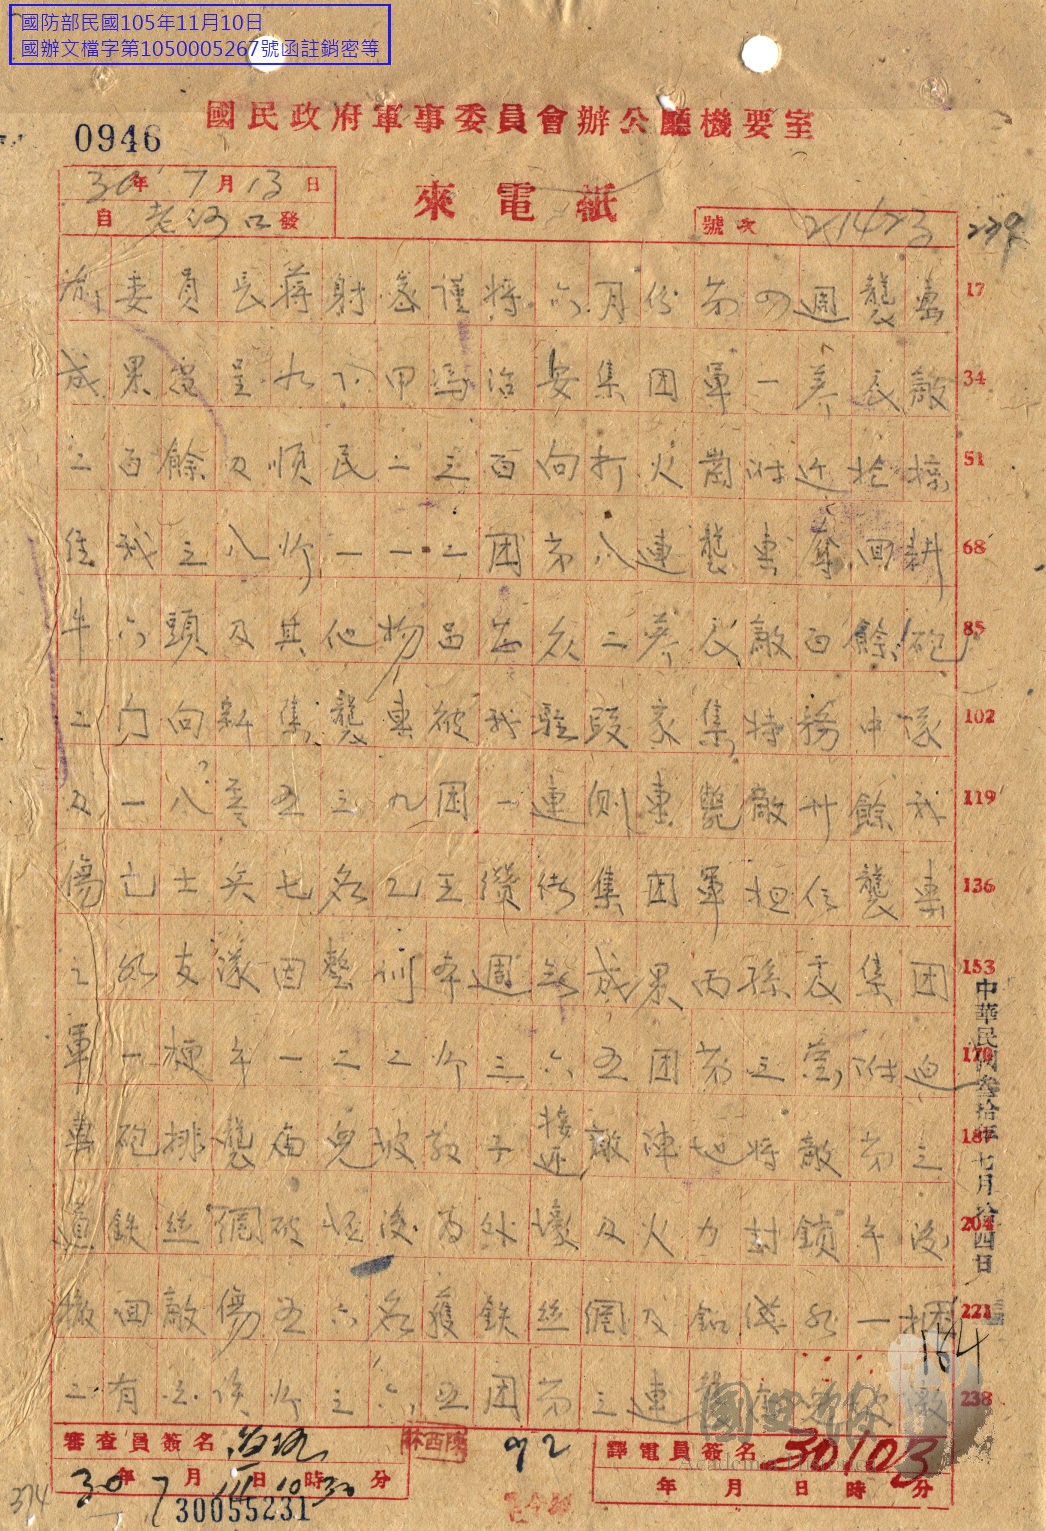 國防部民國105年11月10日
國辦文檔字第1050005267號函註銷密等
國民政府軍事委員會辦公廳機要室
0946
30年7月13日
來電紙
自老河口發
號次 21473
委員長蔣射密謹將六月份第四週襲擊 17
成果彙呈如下甲馮治安集団軍一养辰敵 34
二百餘及順民二三百向打火崗附近抢粮 51
經我三八师一一二团第八連襲擊奪回耕 68
牛六頭及其他物品甚众二养辰敵百餘砲 85
二门向新集襲擊被我駐段家集特務中隊 102
及一八零五三九团一連側擊斃敵廿餘我 119
傷亡士兵七名乙王纘緒集团軍担任襲擊 136
之部支隊因整训本週無成果丙孫震集团 153
軍一梗午一二二师三六五团第三营附迫 170
擊砲排襲 兒坡 子接近敵陣地將敵第三 187
道鉄丝網破坏後為外壕及火力封鎖午後 204
撤回敵傷五六名獲鉄丝網及鉛 線一捆 221
二有 该师三六五团第三連 238
中華民國叁拾年七月拾四日
164
審查員簽名
92
譯電員簽名 30103
30年7月日10時30分
年月日時分
30055231
374